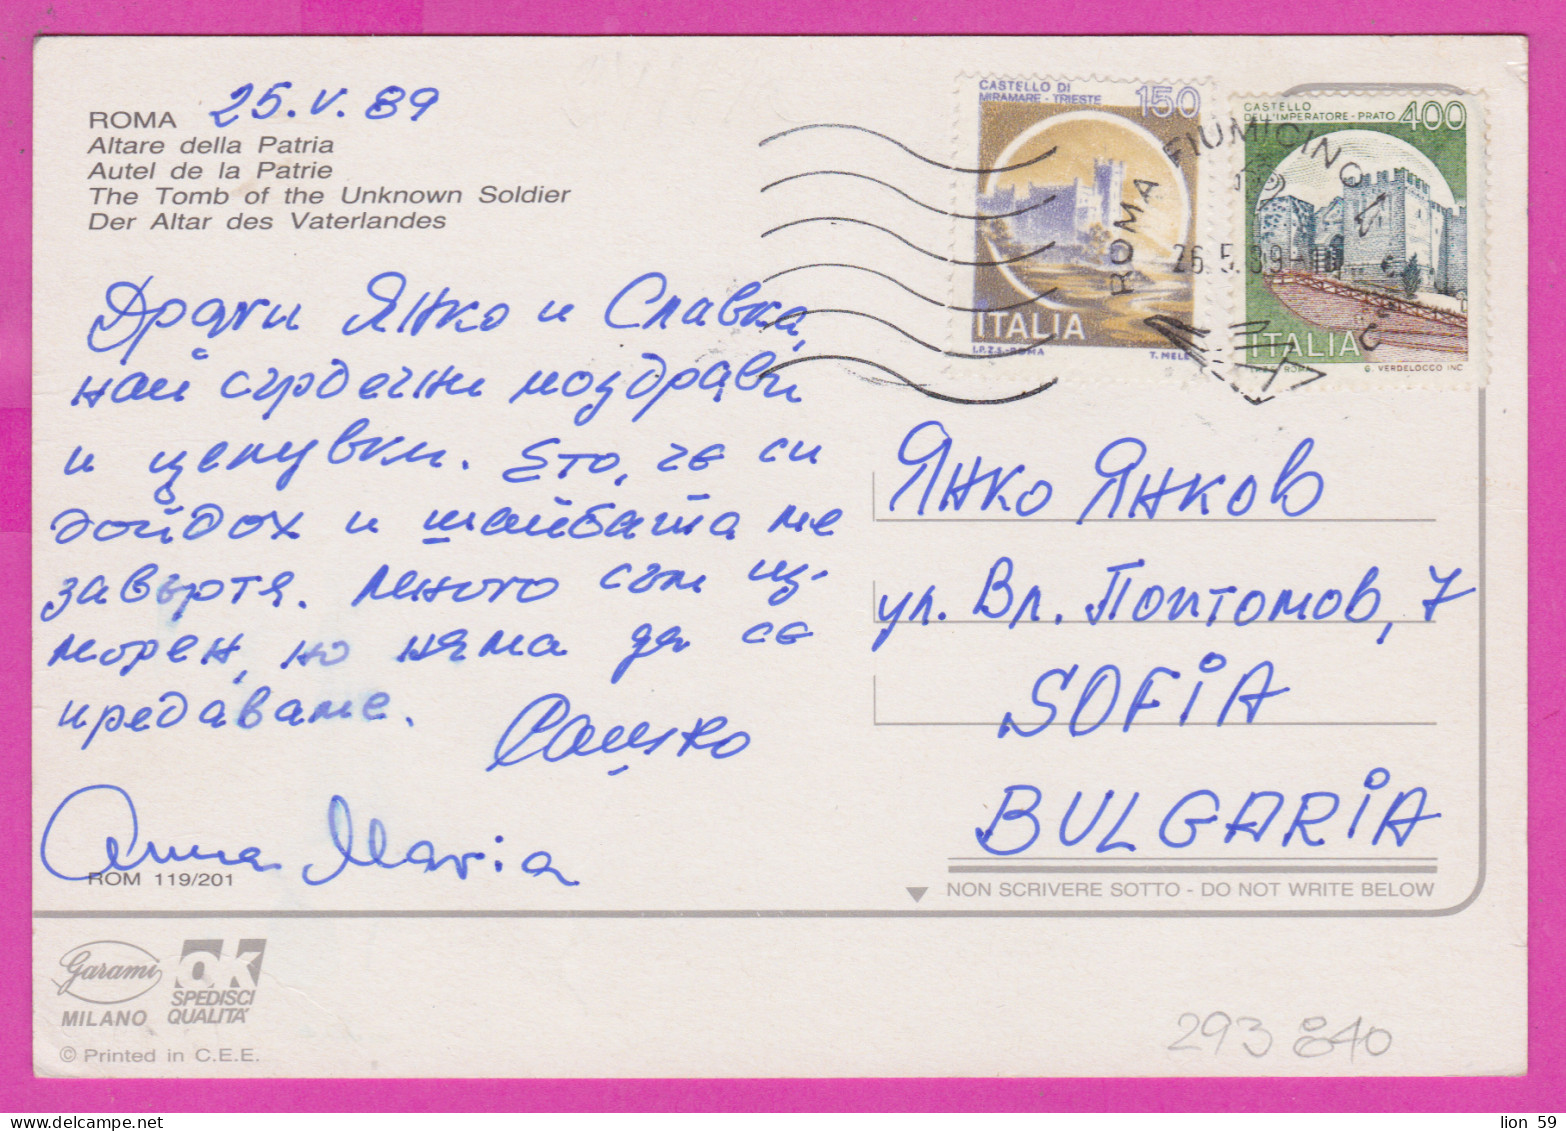 ROMA 25.V.89
Altare della Patria
Autel de la Patrie
The Tomb of the Unknown Soldier
Der Altar des Vaterlandes
Драги Янко и Славка,
най сърдечни поздрави
и целувки. Ето, че си
дойдох и шайбата ме
завъртя. Много съм из-
морен, но няма да се
предаваме. Сашко
Anna Maria
ROM 119/201
CASTELLO DI
MIRAMARE - TRIESTE 150
ITALIA
I.P.Z.S. - ROMA T. MELE
CASTELLO
DELL'IMPERATORE - PRATO 400
ITALIA
I.P.Z.S. ROMA G. VERDELOCCO INC
ROMA FIUMICINO
26.5.89
Янко Янков
ул. Вл. Поптомов, 7
SOFIA
BULGARIA
NON SCRIVERE SOTTO - DO NOT WRITE BELOW
Garami
MILANO
OK
SPEDISCI
QUALITA'
© Printed in C.E.E.
293 840
lion 59